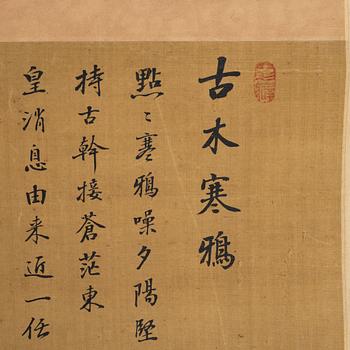 古木寒鴉
點〻寒鴉噪夕陽堅
持古幹接蒼茫東
皇消息由来近一任